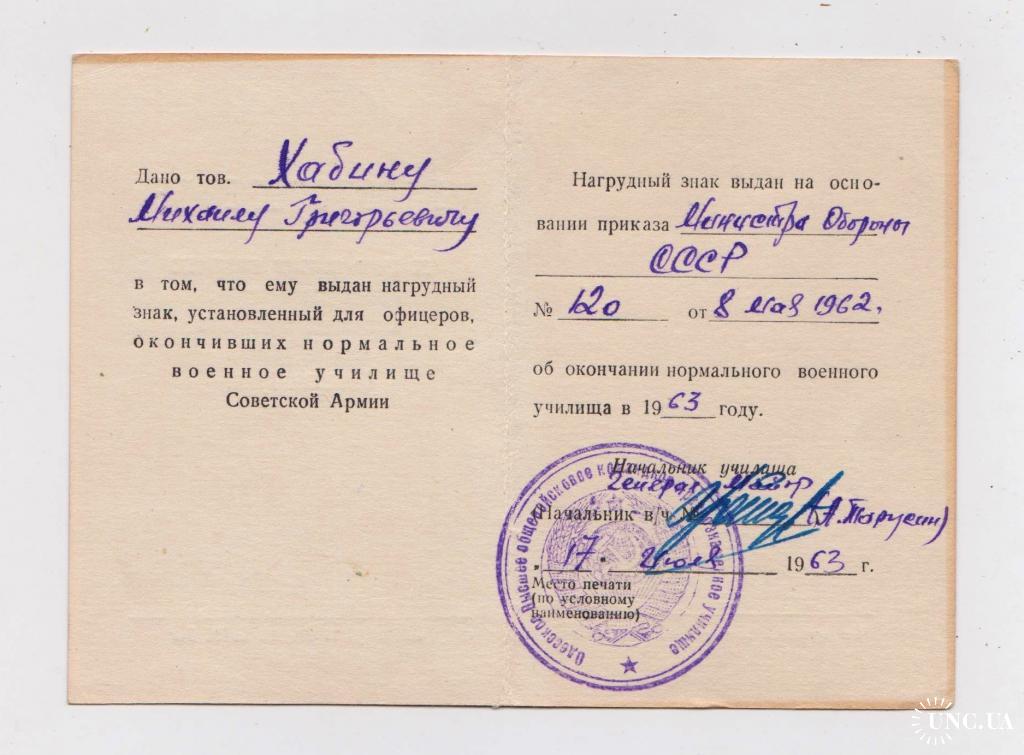 Дано тов. Хабину
Михаилу Григорьевичу
в том, что ему выдан нагрудный
знак, установленный для офицеров,
окончивших нормальное
военное училище
Советской Армии
Нагрудный знак выдан на осно-
вании приказа Министра Обороны
СССР
№ 120 от 8 мая 1962.
об окончании нормального военного
училища в 1963 году.
Начальник училища
Генерал Майор
Начальник в/ч № (А.Тарусин)
„17" июля 1963 г.
Место печати
(по условному
наименованию)
Одесское Высшее общевойсковое командное Краснознаменное училище
UNC.UA